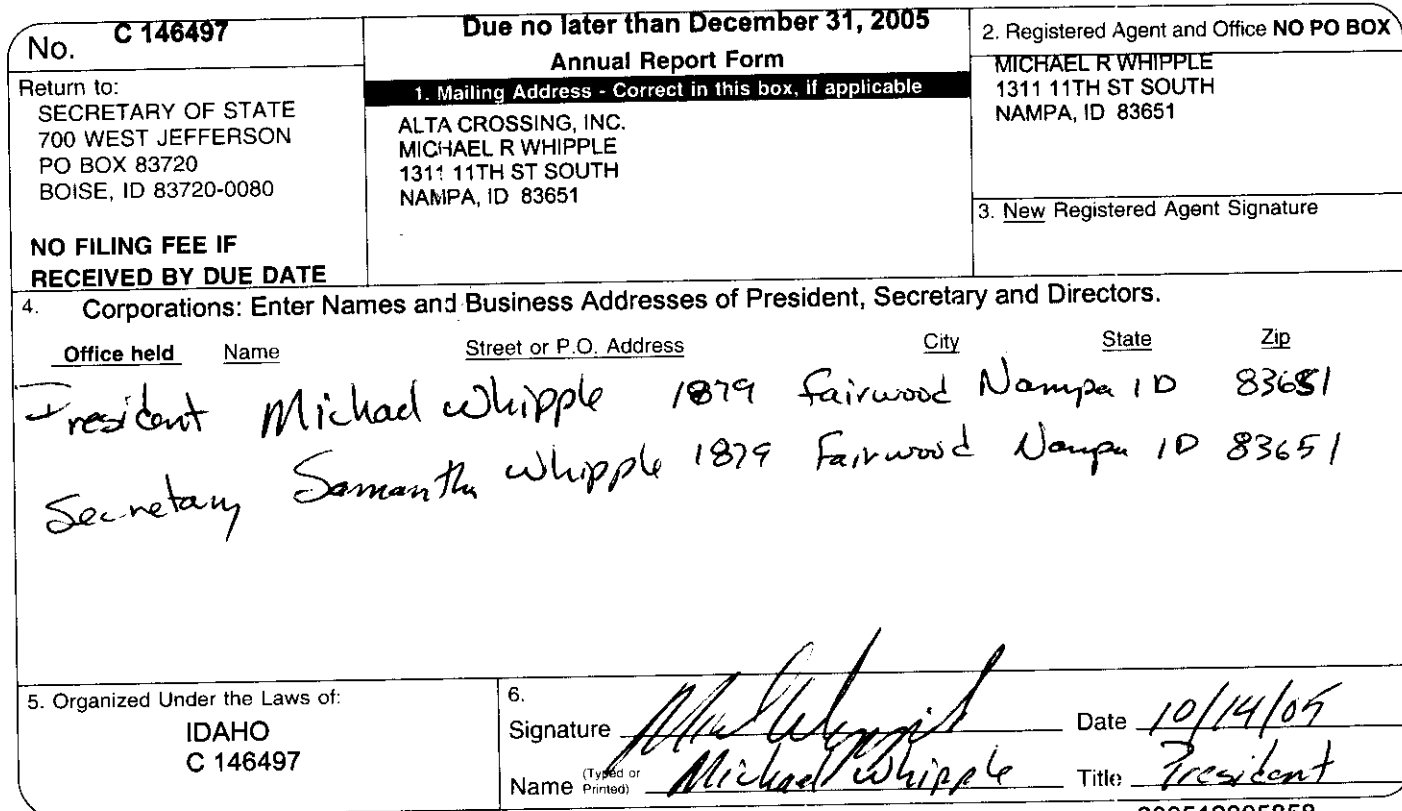 No. C 146497
Return to:
SECRETARY OF STATE
700 WEST JEFFERSON
PO BOX 83720
BOISE, ID 83720-0080
NO FILING FEE IF
RECEIVED BY DUE DATE
Due no later than December 31, 2005
Annual Report Form
1. Mailing Address - Correct in this box, if applicable
ALTA CROSSING, INC.
MICHAEL R WHIPPLE
1311 11TH ST SOUTH
NAMPA, ID 83651
2. Registered Agent and Office NO PO BOX
MICHAEL R WHIPPLE
1311 11TH ST SOUTH
NAMPA, ID 83651
3. New Registered Agent Signature
4. Corporations: Enter Names and Business Addresses of President, Secretary and Directors.
Office held Name Street or P.O. Address City State Zip
President Michael Whipple 1879 Fairwood Nampa ID 83651
Secretary Samantha Whipple 1879 Fairwood Nampa ID 83651
5. Organized Under the Laws of:
IDAHO
C 146497
6.
Signature Date 10/14/05
Name (Typed or Printed) Michael Whipple Title President